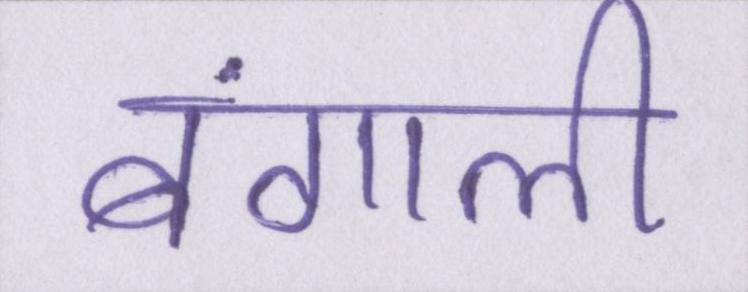 बंगाली